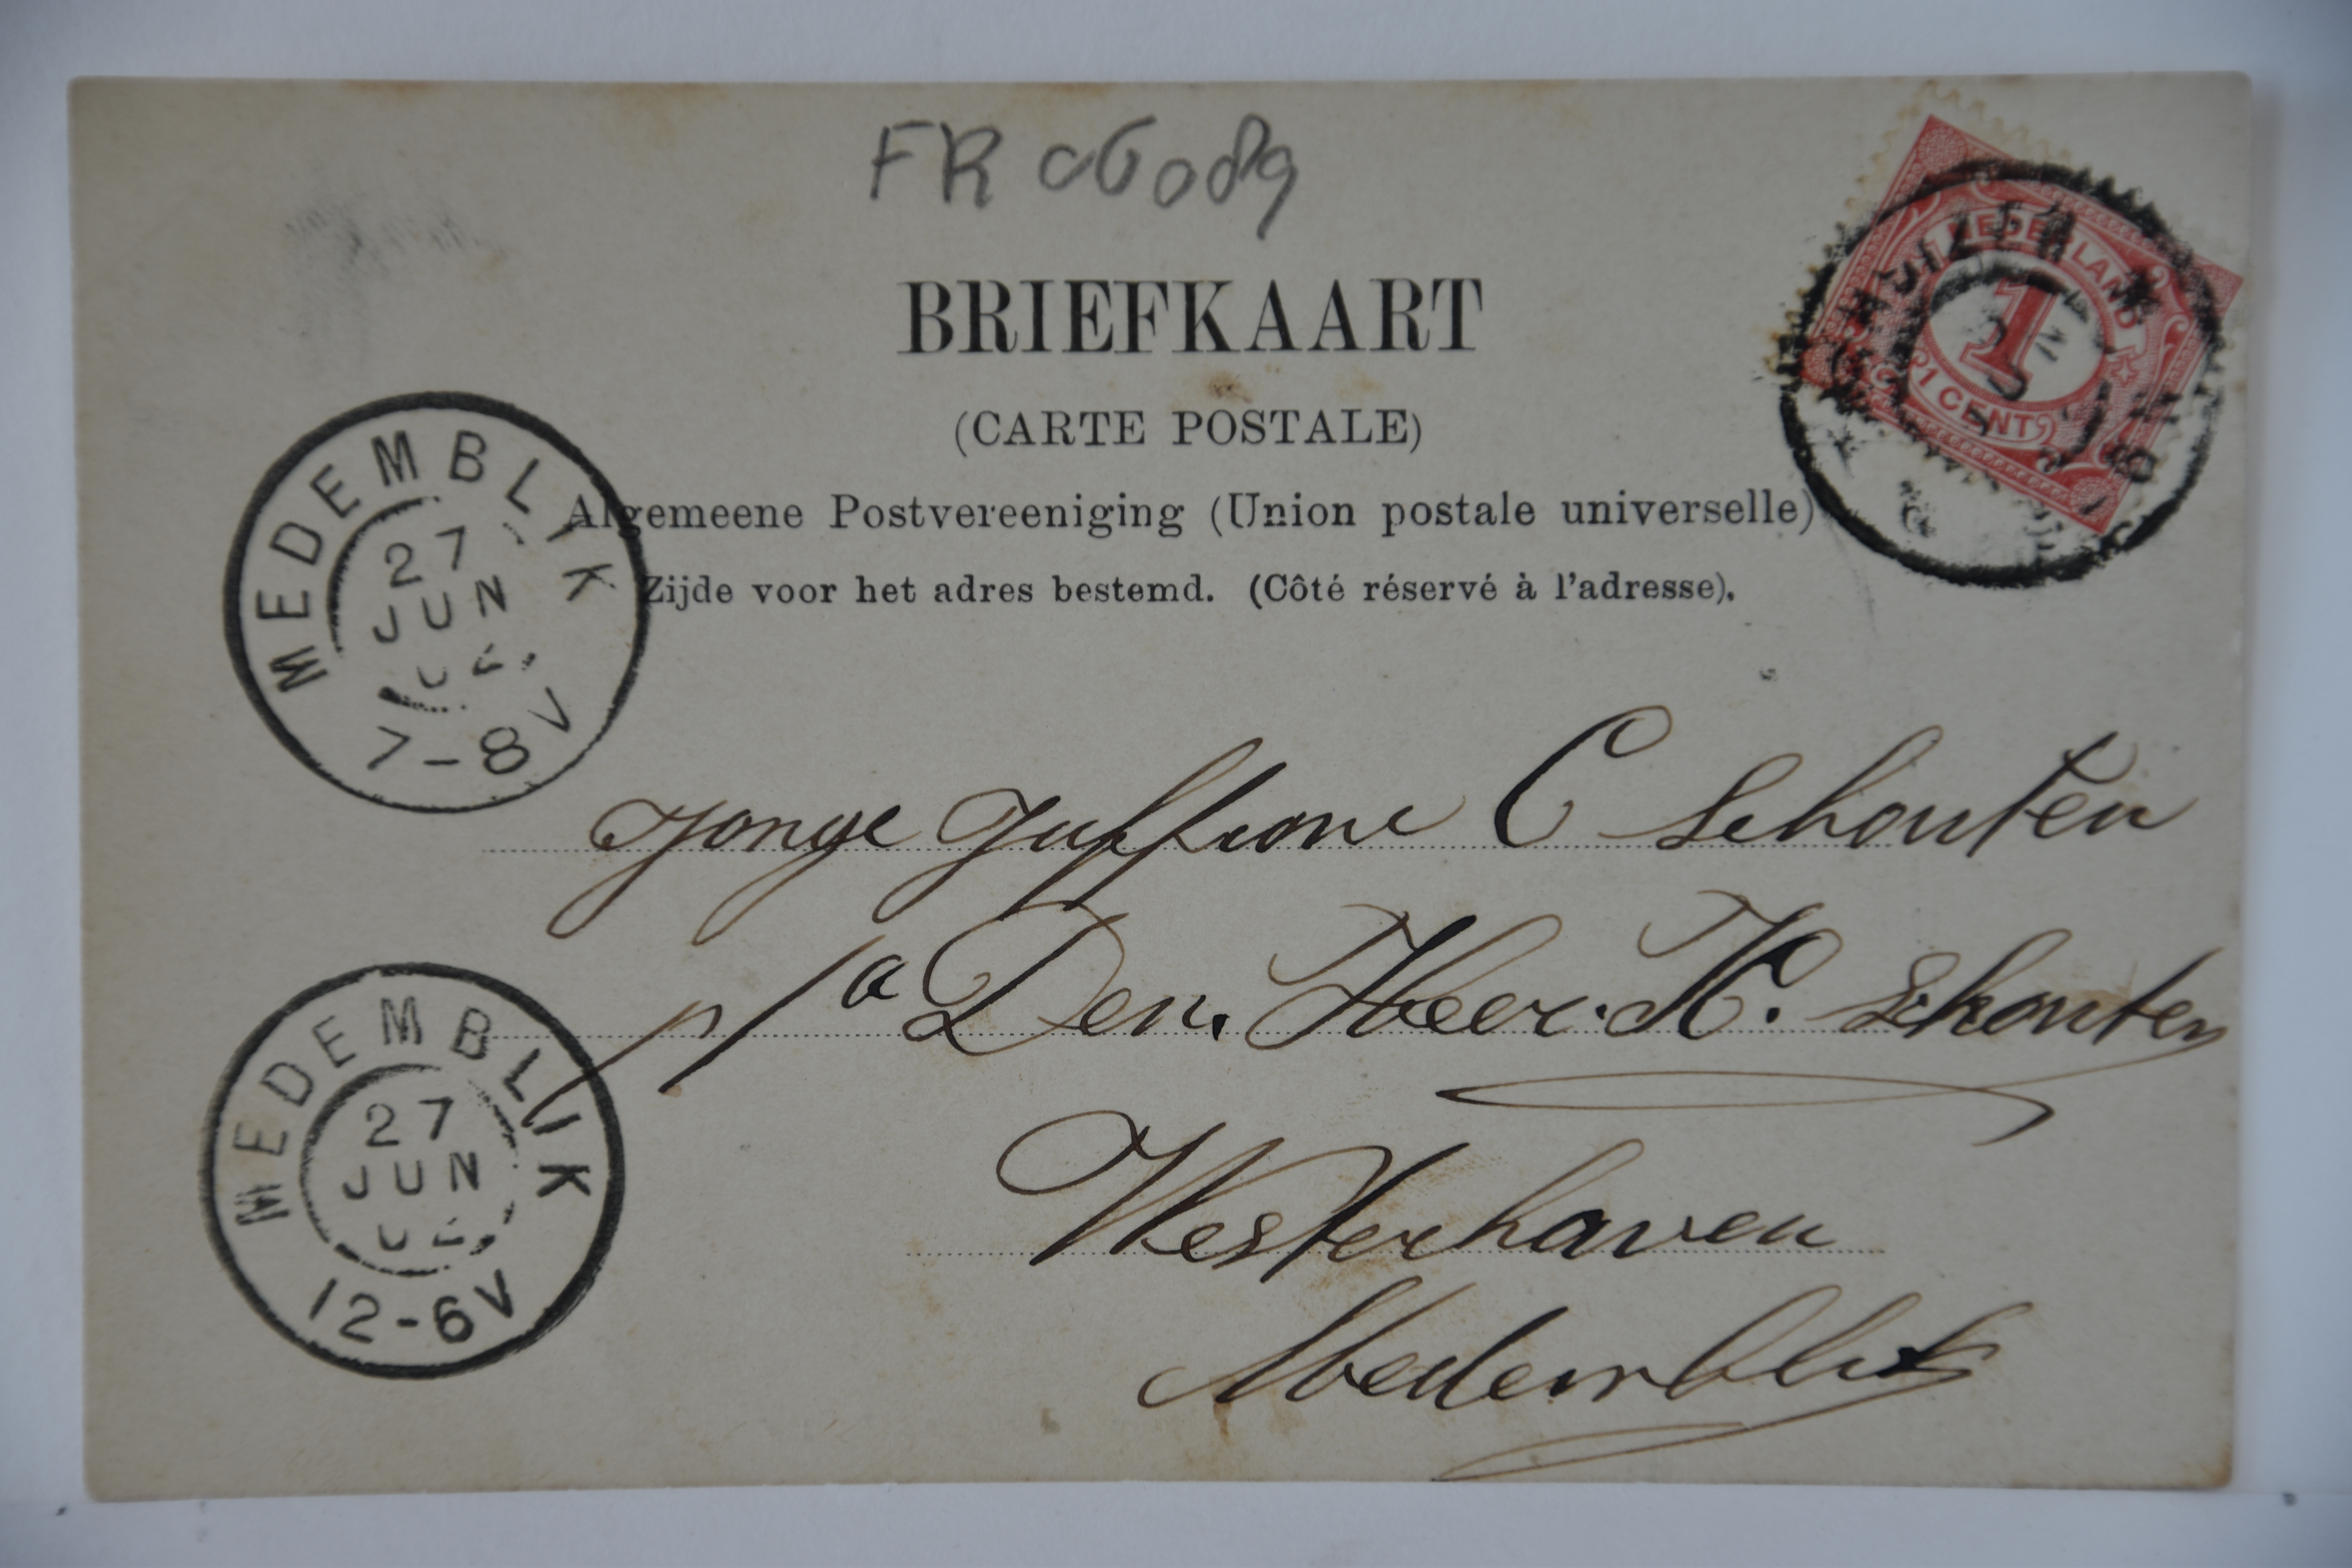 FR 06089
NEDERLAND
1
1 CENT
BRIEFKAART
(CARTE POSTALE)
Algemeene Postvereeniging (Union postale universelle)
Zijde voor het adres bestemd. (Côté réservé à l'adresse).
MEDEMBLYK
27
JUN
02
7-8V
Jonge Juffrouw C Schouten
p/a Den. Heer. K. Schouten
Westerhaven
Medemblik
MEDEMBLIK
27
JUN
02
12-6V